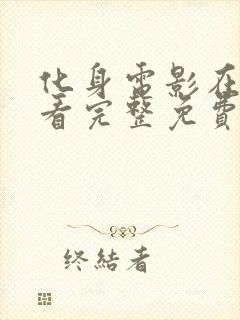 化身電影在
看完整免費
终結者